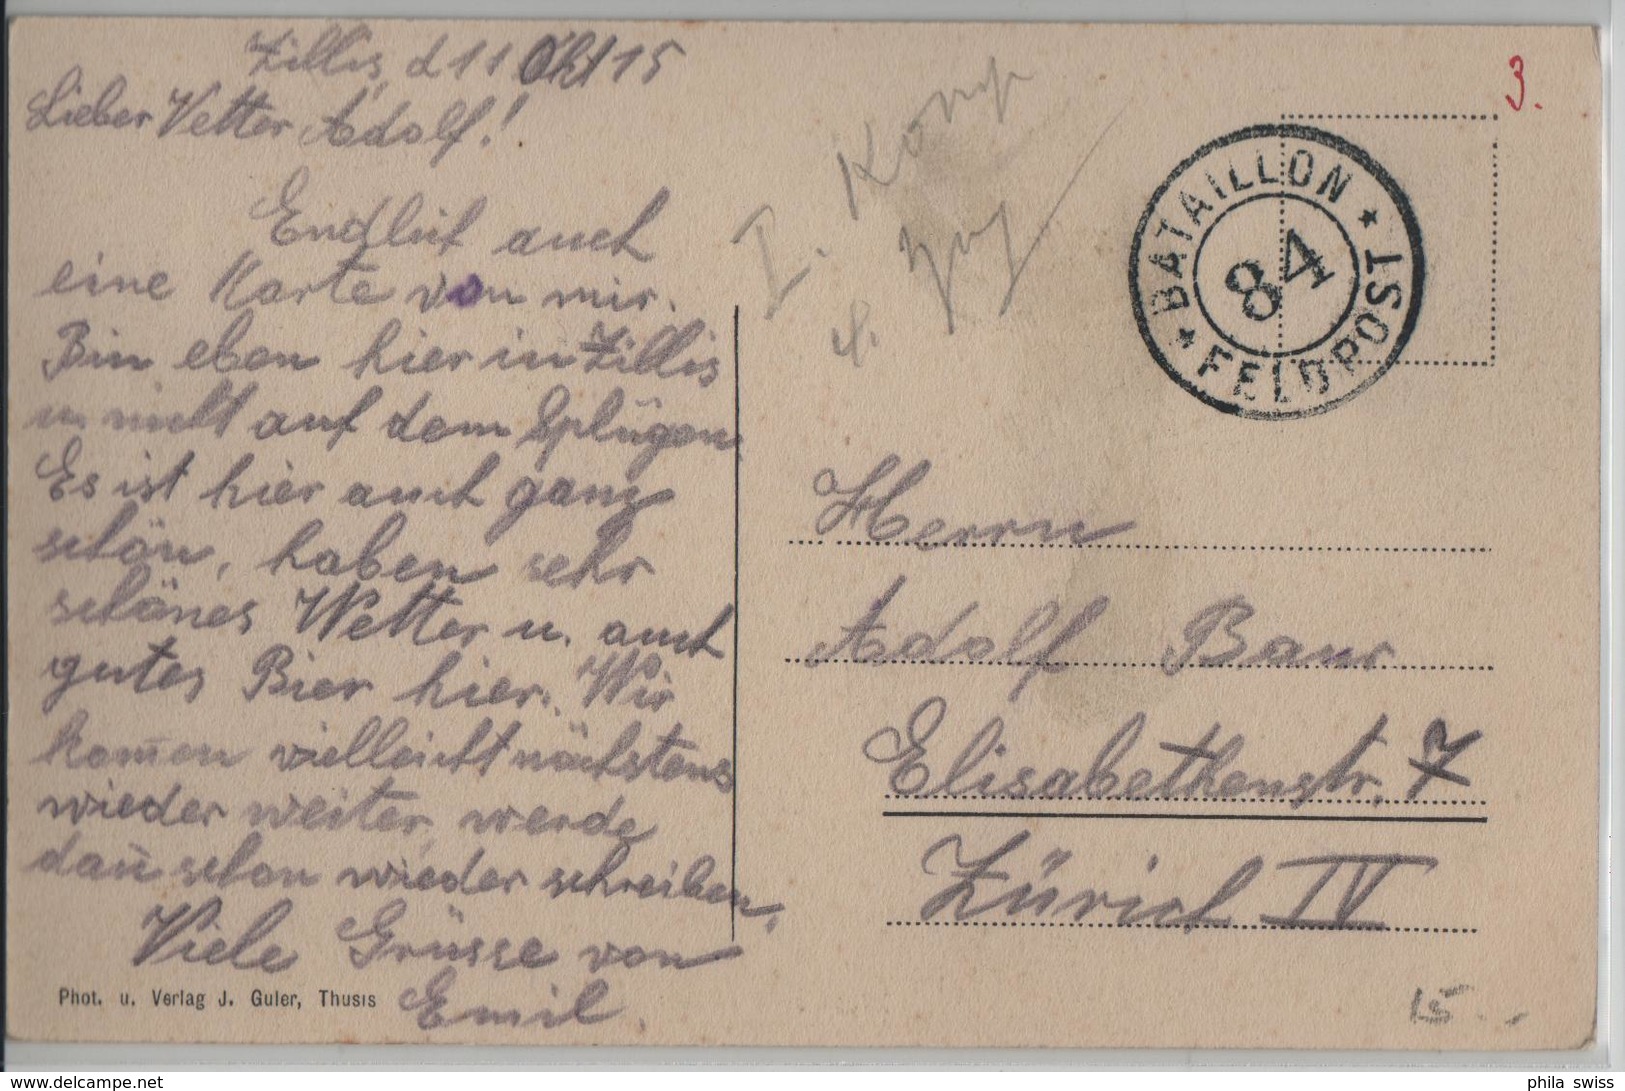 Zillis, d 11 Okt 15
Lieber Vetter Adolf!
Endlich auch
eine Karte von mir.
Bin eben hier in Zillis
u. nicht auf dem Splügen
Es ist hier auch ganz
schön, haben sehr
schönes Wetter u. auch
gutes Bier hier. Wir
kom̄en vielleicht nächstens
wieder weiter, werde
dan̄ schon wieder schreiben.
Viele Grüsse von
Emil.
Phot. u. Verlag J. Guler, Thusis
I. Komp
4. Zug
3.
BATAILLON
84
FELDPOST
Herrn
Adolf Baur
Elisabethenstr. 7
Zürich IV
15.-
www.delcampe.net
phila_swiss